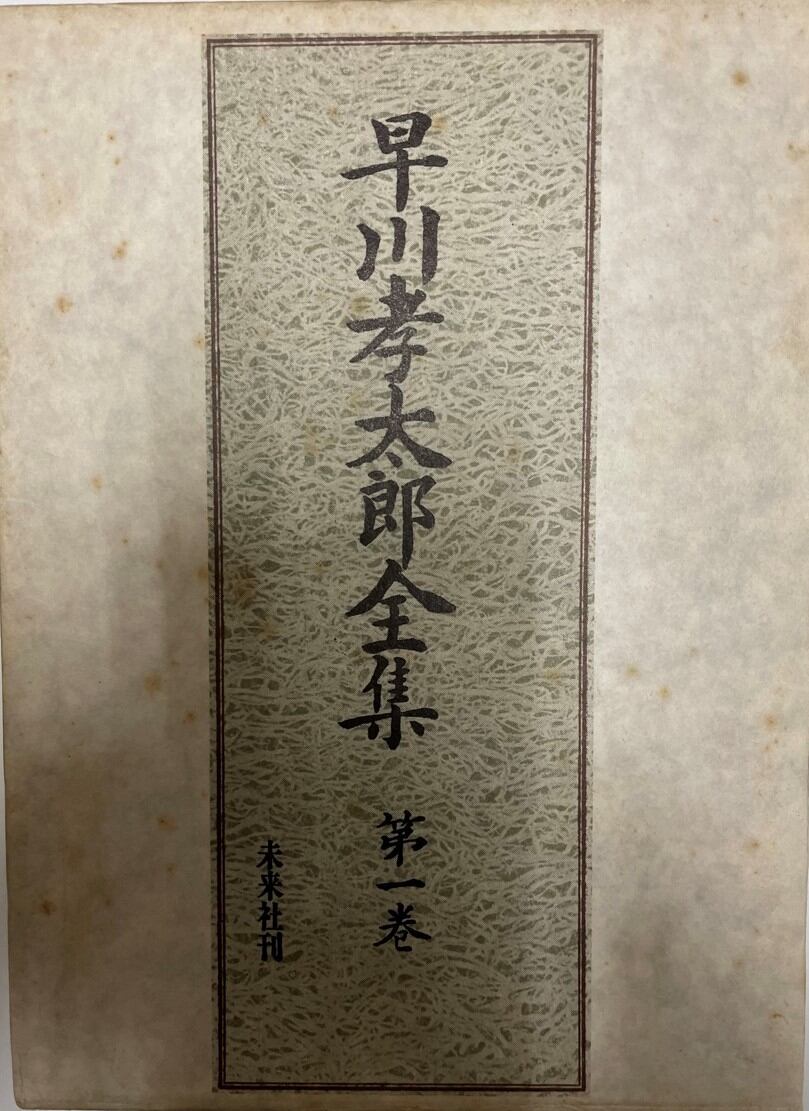 早川孝太郎全集 第一巻
未来社刊